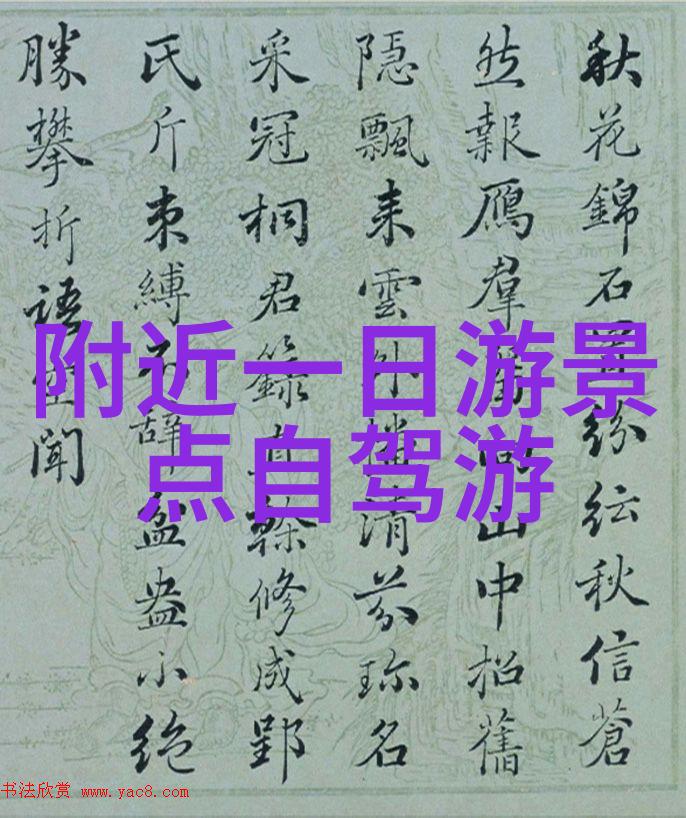 附近一日游景
点自驾游
秋花錦石紛紜秋信蒼
然報鴈羣山中招舊
隱飄来雲外清芬珎名
采冠桐君籙幹修成郢
氏斤束縛不辭盆盎小絶
勝攀折語聞
书法欣赏 www.yac8.com